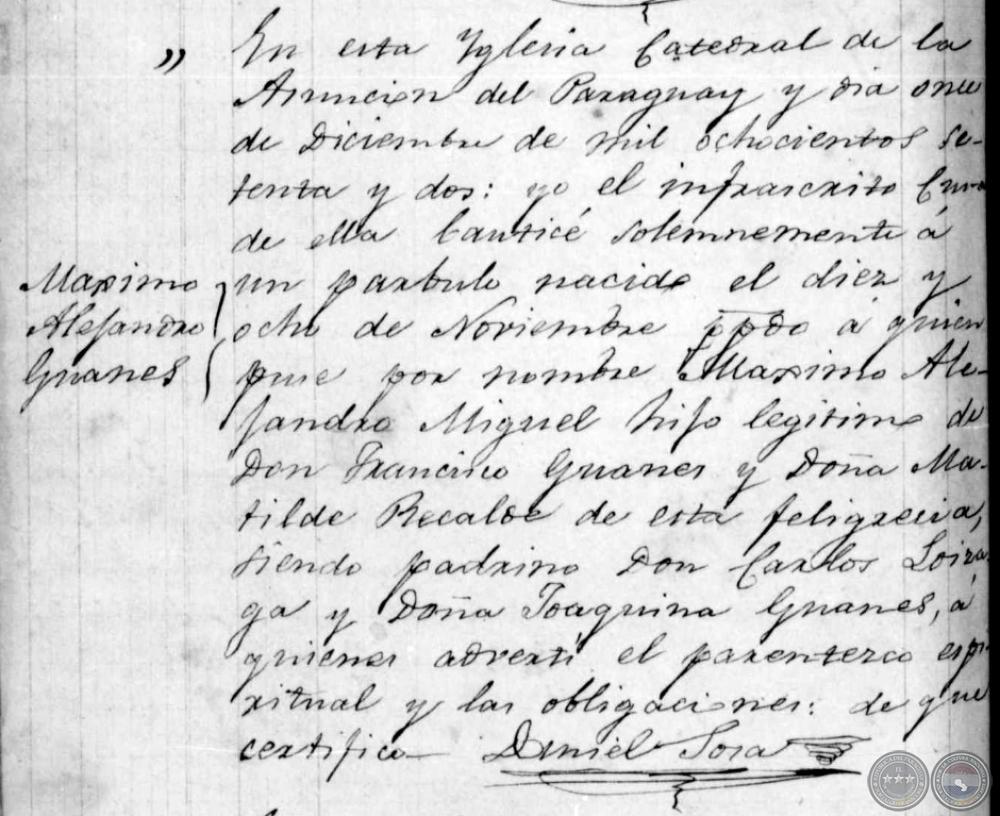 „ En esta Yglesia Catedral de la
Asuncion del Paraguay y dia once
de Diciembre de mil ochocientos se-
tenta y dos: yo el infrascrito Cura
de ella bauticé solemnemente á
un parbulo nacido el diez y
ocho de Noviembre ppdo á quien
puse por nombre Maximo Ale-
jandro Miguel hijo legitimo de
Don Francisco Guanes y Doña Ma-
tilde Recalde de esta feligrecia,
siendo padrino Don Carlos Loiza
ga y Doña Joaquina Guanes, á
quienes advertí el parentezco espi
ritual y las obligaciones: de que
certifico Daniel Sosa
Maximo
Alejandro
Guanes